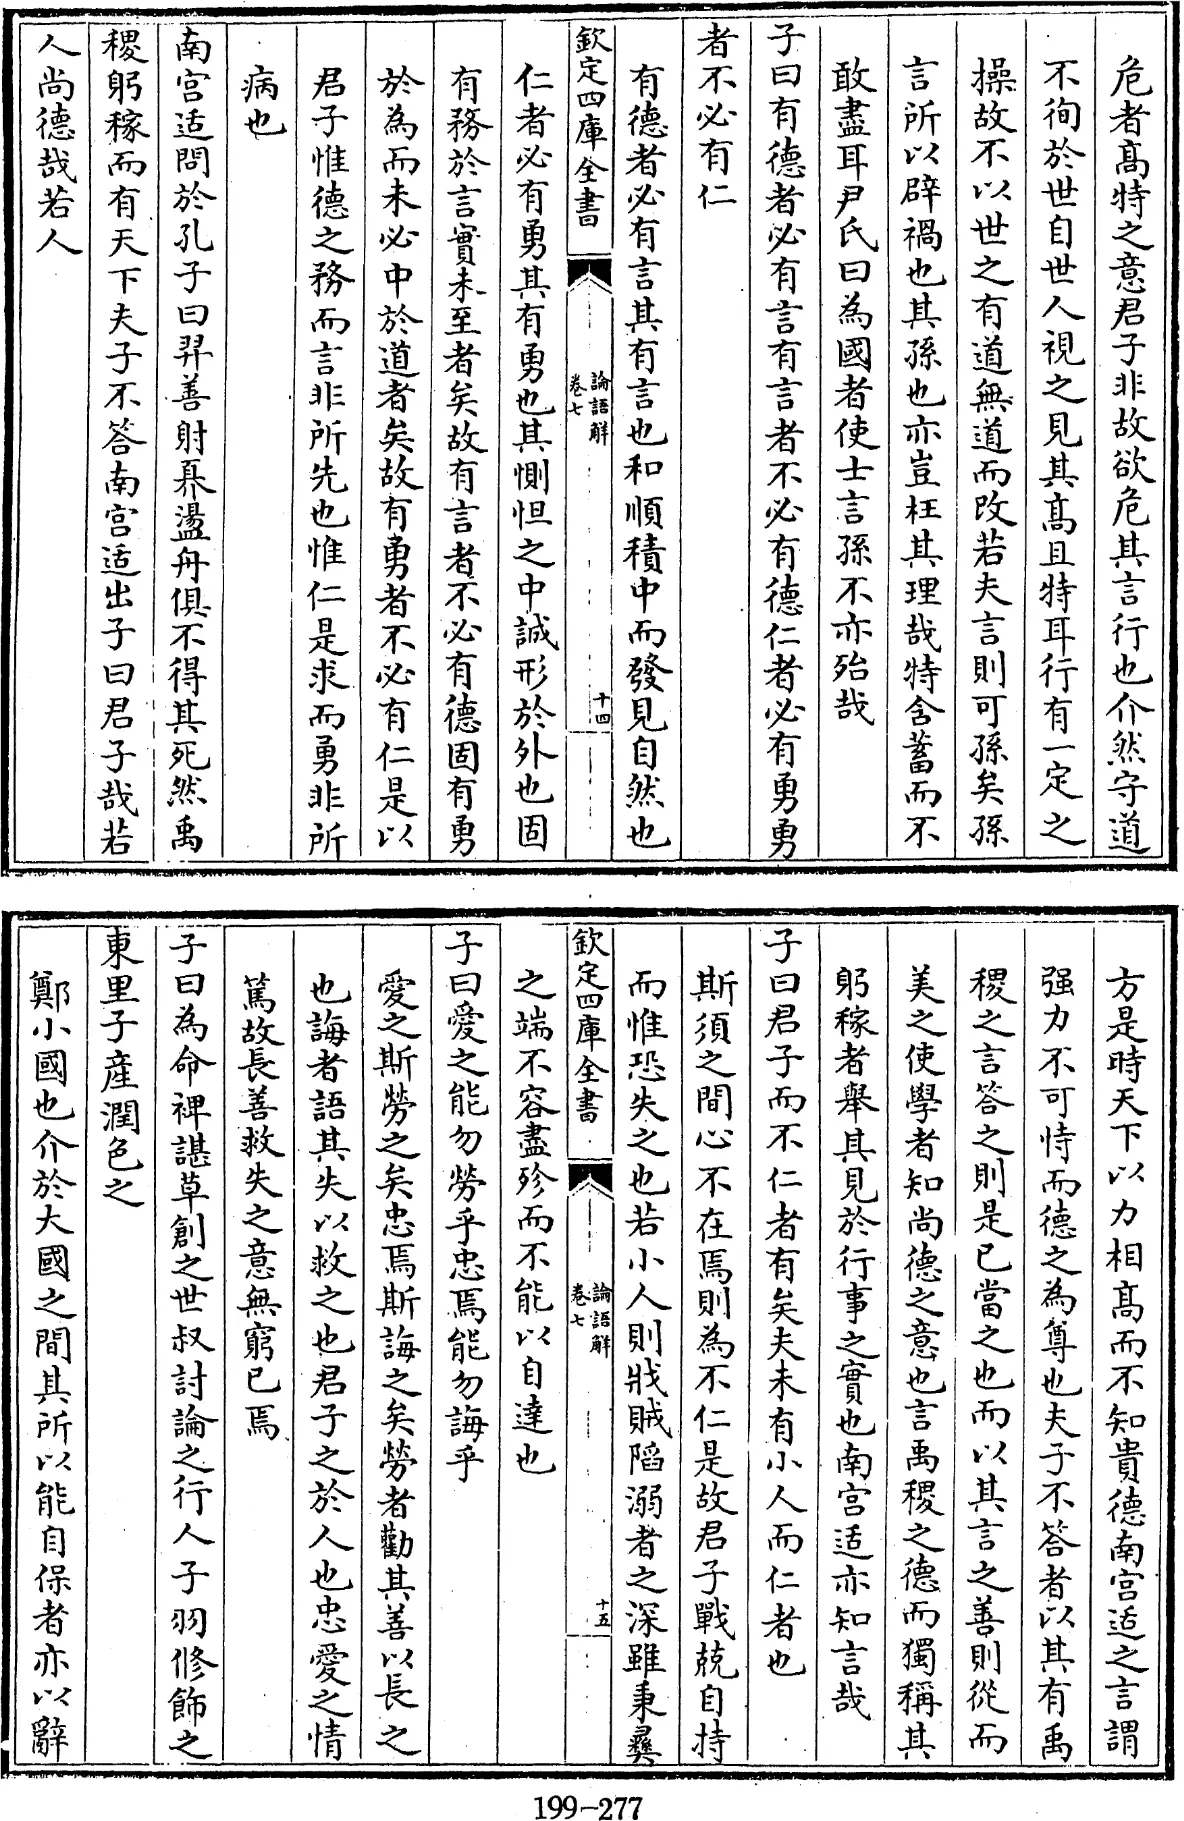 危者髙特之意君子非故欲危其言行也介然守道
不徇於世自世人視之見其髙且特耳行有一定之
操故不以世之有道無道而改若夫言則可孫矣孫
言所以辟禍也其孫也亦豈枉其理哉特含蓄而不
敢盡耳尹氏曰為國者使士言孫不亦殆哉
子曰有德者必有言有言者不必有德仁者必有勇勇
者不必有仁
有德者必有言其有言也和順積中而發見自然也
欽定四庫全書
論語解
卷七
十四
仁者必有勇其有勇也其惻怛之中誠形於外也固
有務於言實未至者矣故有言者不必有德固有勇
於為而未必中於道者矣故有勇者不必有仁是以
君子惟德之務而言非所先也惟仁是求而勇非所
病也
南宫适問於孔子曰羿善射奡盪舟俱不得其死然禹
稷躬稼而有天下夫子不答南宫适出子曰君子哉若
人尚德哉若人
方是時天下以力相髙而不知貴德南宫适之言謂
强力不可恃而德之為尊也夫子不答者以其有禹
稷之言答之則是已當之也而以其言之善則從而
美之使學者知尚德之意也言禹稷之德而獨稱其
躬稼者舉其見於行事之實也南宫适亦知言哉
子曰君子而不仁者有矣夫未有小人而仁者也
斯須之間心不在焉則為不仁是故君子戰兢自持
而惟恐失之也若小人則戕賊陷溺者之深雖秉彞
欽定四庫全書
論語解
卷七
十五
之端不容盡殄而不能以自達也
子曰愛之能勿勞乎忠焉能勿誨乎
愛之斯勞之矣忠焉斯誨之矣勞者勸其善以長之
也誨者語其失以救之也君子之於人也忠愛之情
篤故長善救失之意無窮已焉
子曰為命裨諶草創之世叔討論之行人子羽修飾之
東里子産潤色之
鄭小國也介於大國之間其所以能自保者亦以辭
199-277